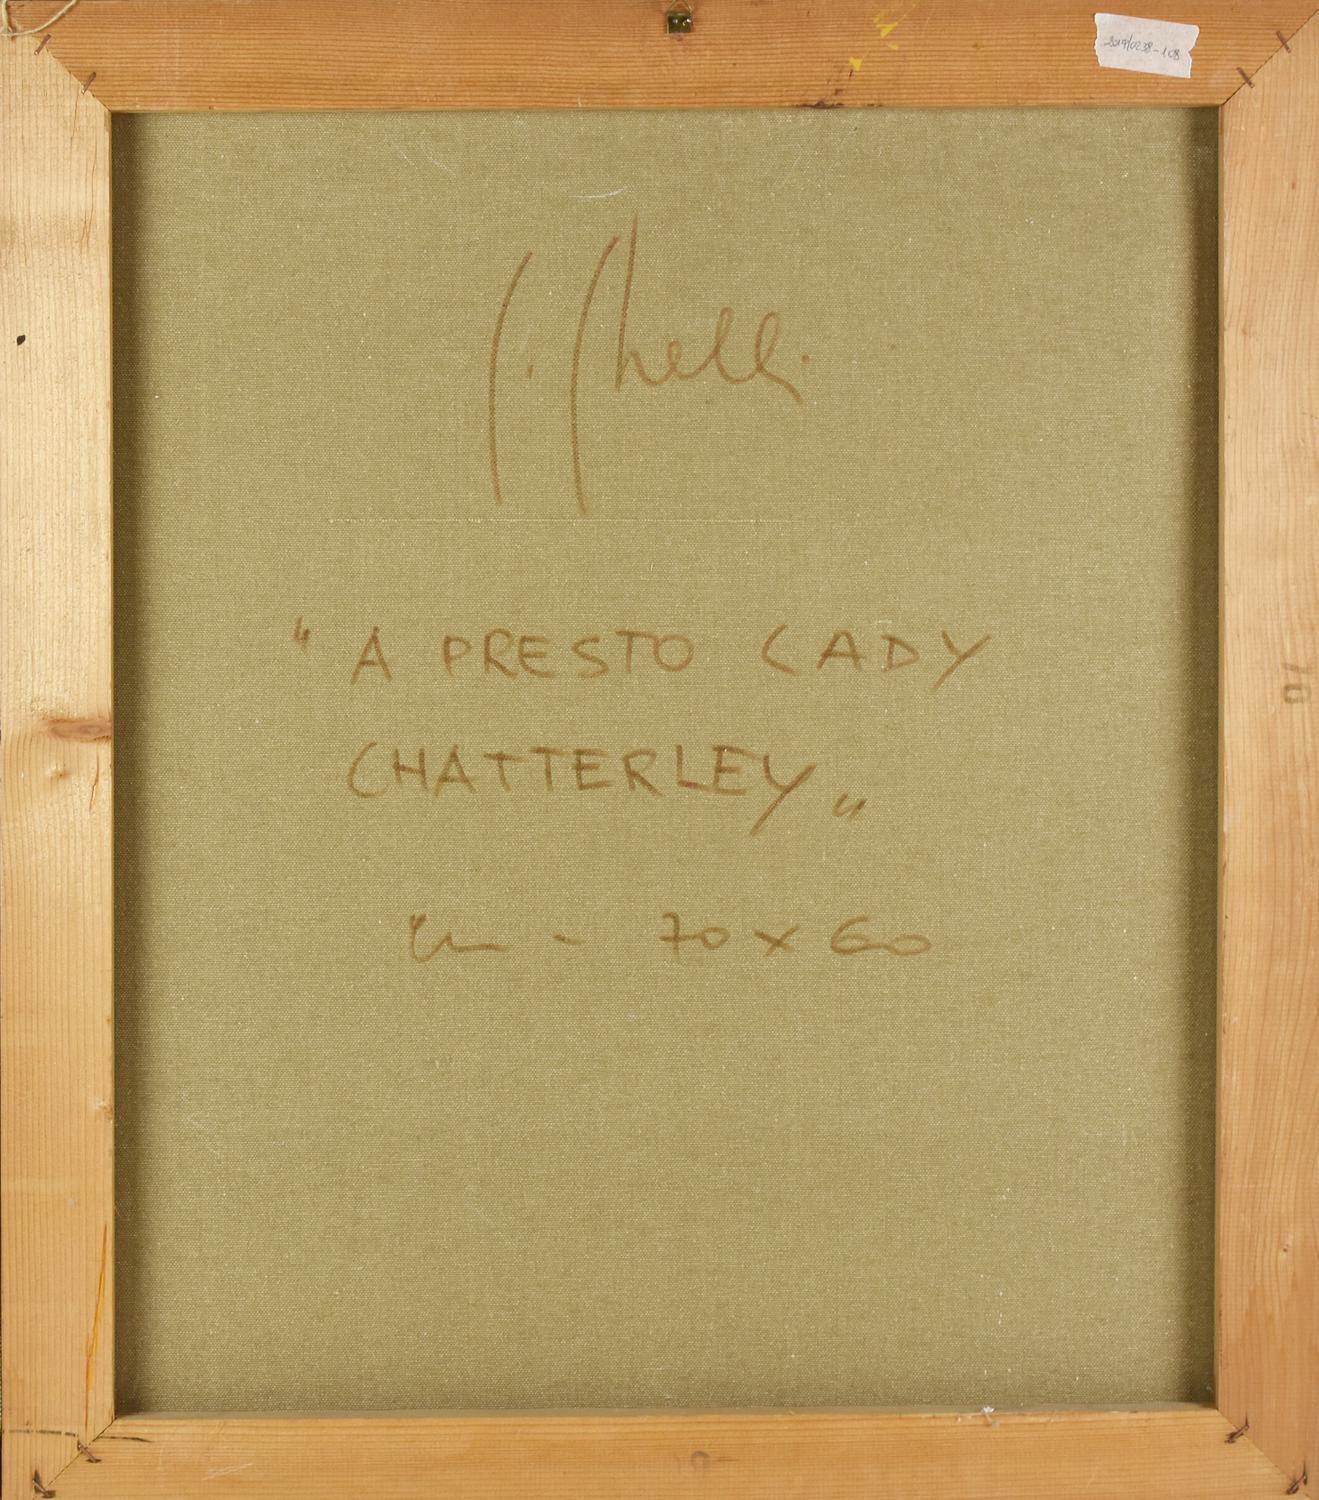 2019/0238-108
"A PRESTO LADY
CHATTERLEY"
cm - 70 x 60
70